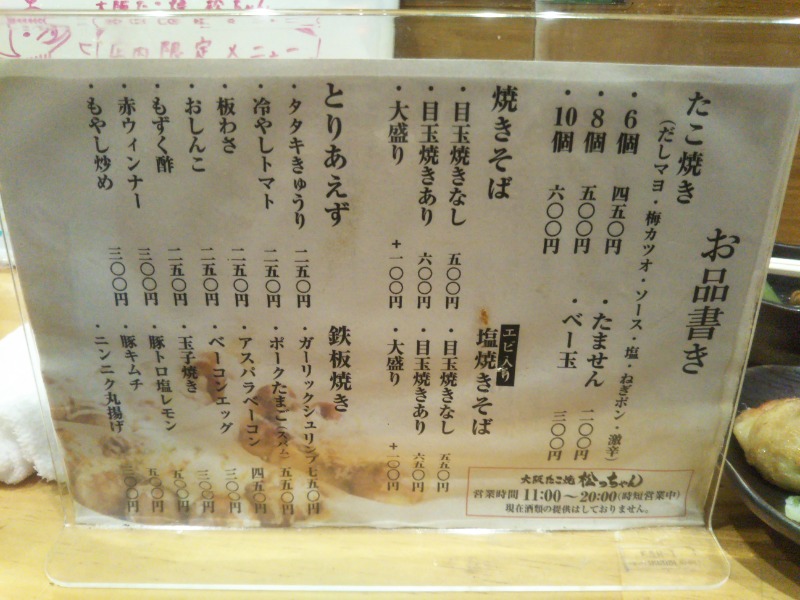 大阪たこ焼 松っちゃん
店内限定メニュー
お品書き
たこ焼き
(だしマヨ・梅カツオ・ソース・塩・ねぎポン・激辛)
・6個 四五〇円
・8個 五〇〇円
・10個 六〇〇円
・たません 二〇〇円
・ベー玉 三〇〇円
焼きそば
・目玉焼きなし 五〇〇円
・目玉焼きあり 六〇〇円
・大盛り +一〇〇円
エビ入り
塩焼きそば
・目玉焼きなし 五五〇円
・目玉焼きあり 六五〇円
・大盛り +一〇〇円
とりあえず
・タタキきゅうり 二五〇円
・冷やしトマト 二五〇円
・板わさ 二五〇円
・おしんこ 二五〇円
・もずく酢 二五〇円
・赤ウィンナー 三〇〇円
・もやし炒め 三〇〇円
鉄板焼き
・ガーリックシュリンプ 七五〇円
・ポークたまご(スパム) 五五〇円
・アスパラベーコン 四五〇円
・ベーコンエッグ 三〇〇円
・玉子焼き 三〇〇円
・豚トロ塩レモン 五〇〇円
・豚キムチ 五〇〇円
・ニンニク丸揚げ 三〇〇円
大阪たこ焼 松っちゃん
営業時間 11:00〜20:00(時短営業中)
現在酒類の提供はしておりません。